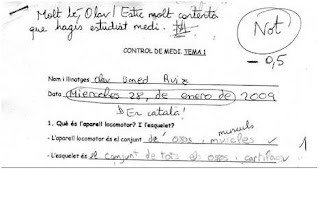 Molt bé, Olav! Estic molt contenta
que hagis estudiat medi.
Not
- 0,5
CONTROL DE MEDI. TEMA 1
Nom i llinatges Olav Umed Ruiz
Data Miercoles 28, de enero de 2009
En català!
1. Què és l'aparell locomotor? I l'esquelet?
musculs
- L'aparell locomotor és el conjunt d' ossos i muscles
1
- L'esquelet és el conjunt de tots els ossos i cartílags